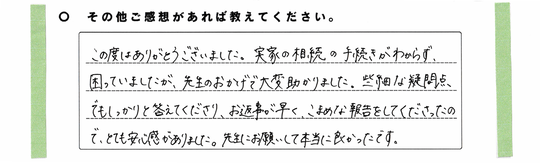 ○ その他ご感想があれば教えてください。
この度はありがとうございました。実家の相続の手続きがわからず、
困っていましたが、先生のおかげで大変助かりました。些細な疑問点、
でもしっかりと答えてくださり、お返事が早く、こまめな報告をしてくださったの
で、とても安心感がありました。先生にお願いして本当に良かったです。